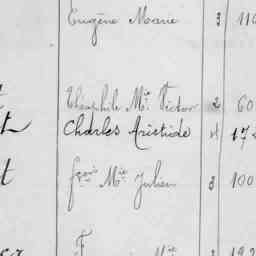 Eugène Marie 3 110
Théophile Mie Victor 2 60
Charles Aristide 4 172
fçois Mie Julien 3 100